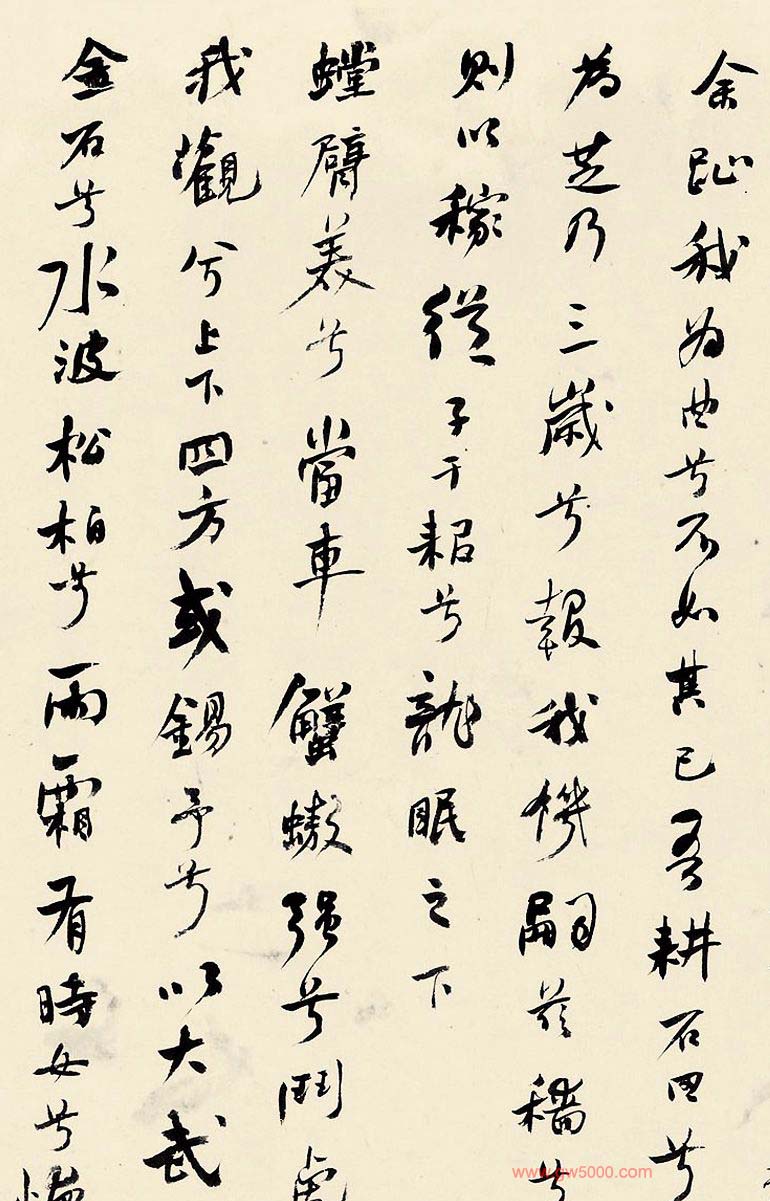 余趾我为曲兮不如其已吾耕石田兮
為芝乃三歲兮報我機嗣茲穡兮
則以稼從子于耜兮龍眠之下
螳臂美兮當車蟹螯強兮鬥虎
我觀兮上下四方或錫予兮以大武
金石兮水波松柏兮雨霜有時女兮悔
www.gw5000.com